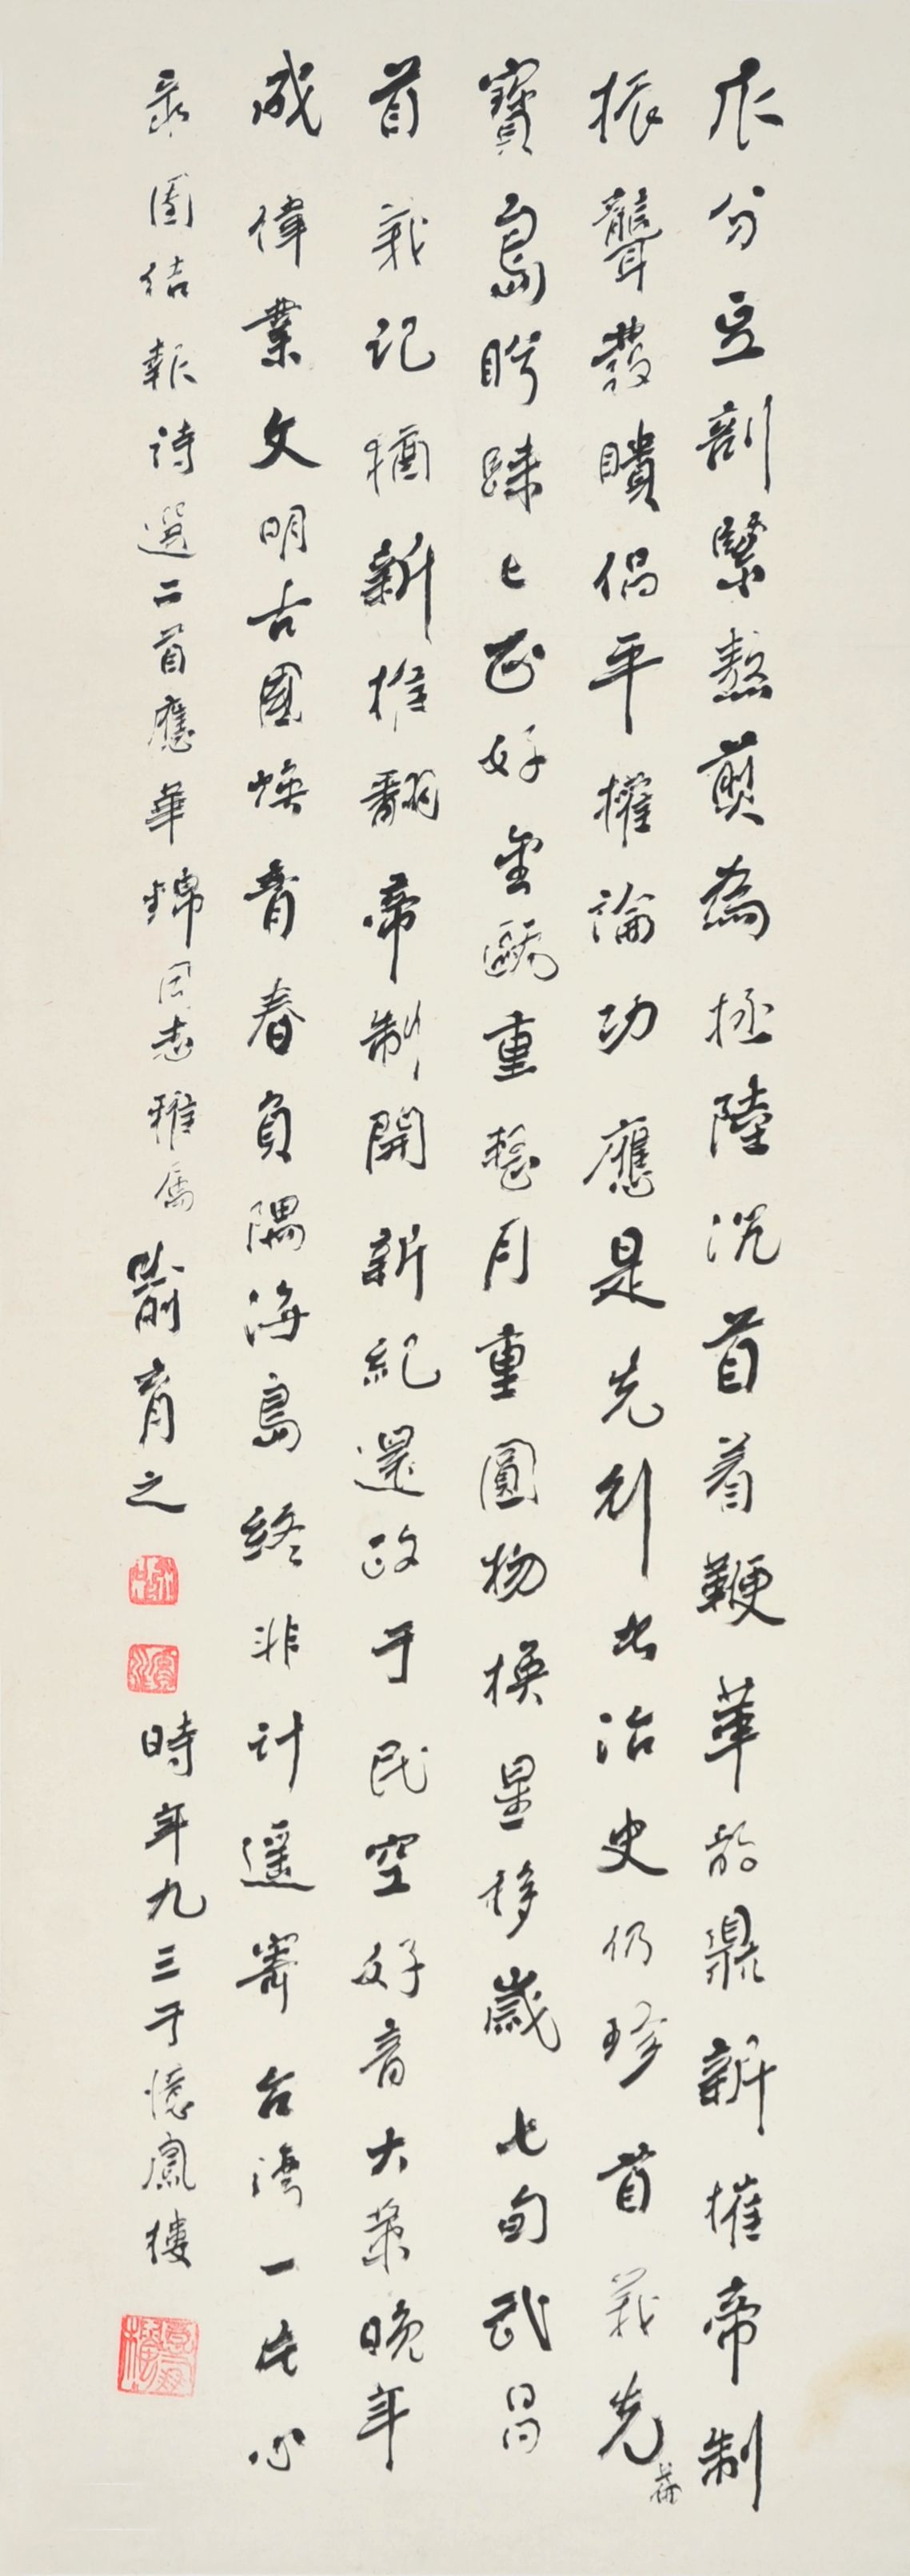 瓜分豆剖緊熬煎為拯陸沉首着鞭革故鼎新摧帝制
振聾發聵倡平權論功應是先列出治史仍珍首義先
篇
寶島盼歸七正好金甌重整月重圓物換星移歲七旬武昌
首義記猶新推翻帝制開新紀還政于民空好音大業晚年
成偉業文明古國煥青春負隅海島終非計遥寄台灣一片心
录團结報诗選二首應華錦同志雅屬 喻育之
時年九三于憶鳳樓